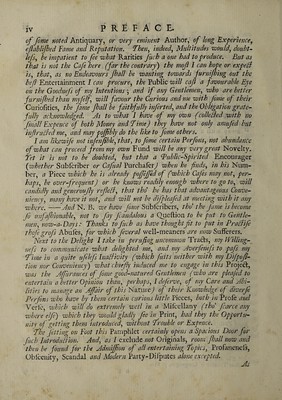 iv PREFACE.
of some noted Antiquary, or very eminent Author, of long Experience,
establish'd Fame and Reputation. Then, indeed, Multitudes would, doubt-
less, be impatient to see what Rarities such a one had to produce. But as
that is not the Case here (for the contrary) the most I can hope or expect
is, that, as no Endeavours shall be wanting towards furnishing out the
best Entertainment I can procure, the Public will cast a favourable Eye
on the Goodness of my Intentions; and if any Gentlemen, who are better
furnished than myself, will favour the Curious and me with some of their
Curiosities, the same shall be faithfully inserted, and the Obligation grate-
fully acknowledged. As to what I have of my own (collected with no
small Expence of both Money and Time) they have not only amused but
instructed me, and may possibly do the like to some others.
I am likewise not insensible, that, to some certain Persons, not abundance
of what can proceed from my own Fund will be any very great Novelty.
Yet it is not to be doubted, but that a Public-Spirited Encourager
(whether Subscriber or Casual Purchaser) when he finds, in his Num-
ber, a Piece which he is already possessed of (which Cases may not, per-
haps, be over-frequent) or he knows readily enough where to go to, will
candidly and generously reflect, that tho' he has that advantageous Conve-
niency, many have it not, and will not be displeased at meeting with it any
where. —— And N. B. we have some Subscribers, tho' the same is become
so unfashionable, not to say scandalous a Question to be put to Gentle-
men, now-a-Days: Thanks to such as have thought fit to put in Practise
those gross Abuses, for which several well-meaners are now Sufferers.
Next to the Delight I take in perusing uncommon Tracts, my Willing-
ness to communicate what delighted me, and my Averseness to pass my
Time in a quite useless Inactivity (which suits neither with my Disposi-
tion nor Conveniency) what chiefly induced me to engage in this Project,
was the Assurances of some good-natured Gentlemen (who are pleased to
entertain a better Opinion than, perhaps, I deserve, of my Care and Abi-
lities to manage an Affair of this Nature) of their Knowledge of diverse
Persons who have by them certain curious little Pieces, both in Prose and
Verse, which will do extremely well in a Miscellany (tho' scarce any
where else) which they would gladly see in Print, had they the Opportu-
nity of getting them introduced, without Trouble or Expence.
The setting on Foot this Pamphlet certainly opens a Spacious Door for
such Introduction. And, as I exclude not Originals, room shall now and
then be found for the Admission of all entertaining Topics, Profaneness,
Obscenity, Scandal and Modern Party-Disputes alone excepted.
As